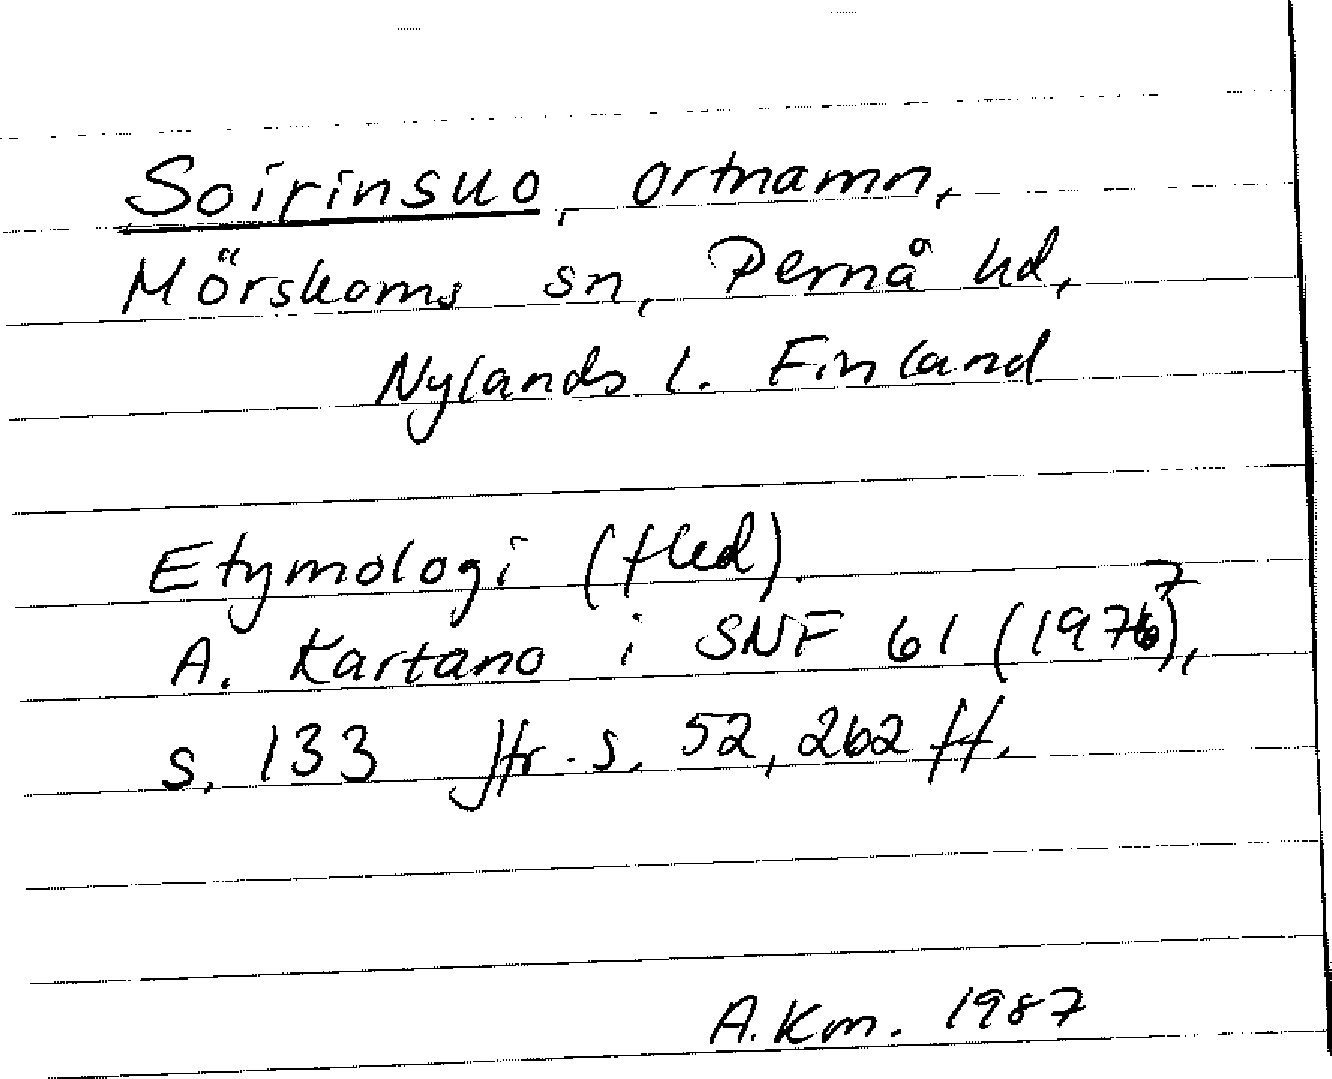 Soirinsuo, ortnamn,
Mörskoms sn, Pernå hd,
Nylands l. Finland
Etymologi (fled).
A. Kartano i SNF 61 (1977),
s. 133 Jfr s. 52, 262 ff.
A.Km. 1987